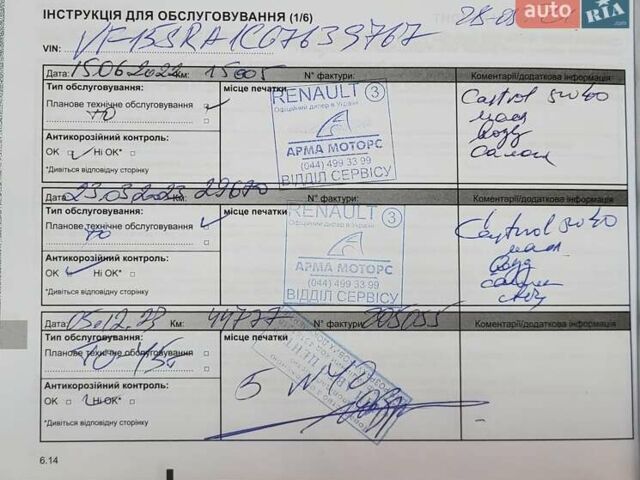 ІНСТРУКЦІЯ ДЛЯ ОБСЛУГОВУВАННЯ (1/6)
auto RIA.com
VIN: VF15SRA1C67639767
Дата: 15.06.2022 Км: 15005 N° фактури: Коментарі/додаткова інформація
Тип обслуговування: місце печатки
Планове технічне обслуговування
ТО
Антикорозійний контроль:
OK Ні OK*
*Дивіться відповідну сторінку
RENAULT 3
Офіційний дилер в Україні
АРМА МОТОРС
(044) 499 33 99
ВІДДІЛ СЕРВІСУ
Castrol 5W40
масл
возд
салон
Дата: 23.03.2023 Км: 29670 N° фактури: Коментарі/додаткова інформація
Тип обслуговування: місце печатки
Планове технічне обслуговування
ТО
Антикорозійний контроль:
OK Ні OK*
*Дивіться відповідну сторінку
RENAULT 3
Офіційний дилер в Україні
АРМА МОТОРС
(044) 499 33 99
ВІДДІЛ СЕРВІСУ
Castrol 5W40
масл
возд
салон
Дата: 05.12.23 Км: 44777 N° фактури: Коментарі/додаткова інформація
Тип обслуговування: місце печатки
Планове технічне обслуговування
ТО-45
Антикорозійний контроль:
OK Ні OK*
*Дивіться відповідну сторінку
5 W40
6.14